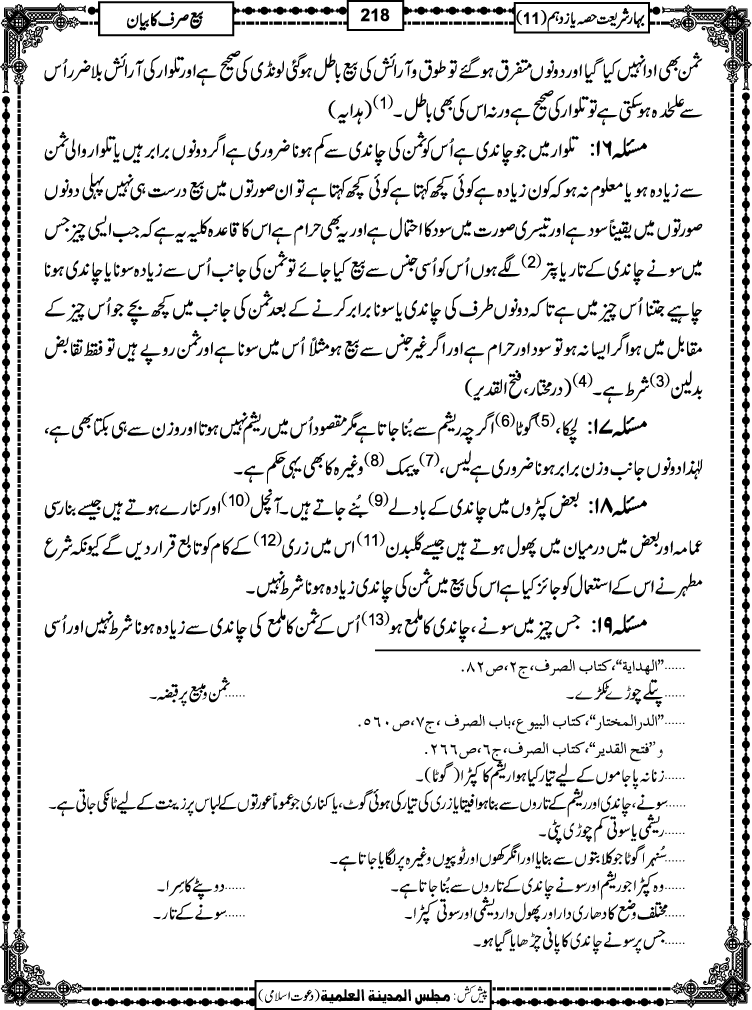 بہار شریعت حصہ یازدہم (11)
218
بیع صرف کا بیان
ثمن بھی ادا نہیں کیا گیا اور دونوں متفرق ہو گئے تو طوق و آرائش کی بیع باطل ہو گئی لونڈی کی صحیح ہے اور تلوار کی آرائش بلا ضرر اُس
سے علیٰحدہ ہو سکتی ہے تو تلوار کی صحیح ہے ورنہ اس کی بھی باطل۔(1) (ہدایہ)
مسئلہ ۱۶: تلوار میں جو چاندی ہے اُس کو ثمن کی چاندی سے کم ہونا ضروری ہے اگر دونوں برابر ہیں یا تلوار والی ثمن
سے زیادہ ہو یا معلوم نہ ہو کہ کون زیادہ ہے کوئی کچھ کہتا ہے کوئی کچھ کہتا ہے تو ان صورتوں میں بیع درست ہی نہیں پہلی دونوں
صورتوں میں یقیناً سود ہے اور تیسری صورت میں سود کا احتمال ہے اور یہ بھی حرام ہے اس کا قاعدہ کلیہ یہ ہے کہ جب ایسی چیز جس
میں سونے چاندی کے تار یا پتر (2) لگے ہوں اُس کو اُسی جنس سے بیع کیا جائے تو ثمن کی جانب اُس سے زیادہ سونا یا چاندی ہونا
چاہیے جتنا اُس چیز میں ہے تا کہ دونوں طرف کی چاندی یا سونا برابر کرنے کے بعد ثمن کی جانب میں کچھ بچے جو اُس چیز کے
مقابل میں ہو اگر ایسا نہ ہو تو سود اور حرام ہے اور اگر غیر جنس سے بیع ہو مثلاً اُس میں سونا ہے اور ثمن روپے ہیں تو فقط تقابض
بدلین (3) شرط ہے۔(4) (درمختار، فتح القدیر)
مسئلہ ۱۷: لچکا،(5) گوٹا (6) اگرچہ ریشم سے بُنا جاتا ہے مگر مقصود اُس میں ریشم نہیں ہوتا اور وزن سے ہی بکتا بھی ہے،
لہٰذا دونوں جانب وزن برابر ہونا ضروری ہے لیس،(7) پیمک (8) وغیرہ کا بھی یہی حکم ہے۔
مسئلہ ۱۸: بعض کپڑوں میں چاندی کے بادلے (9) بُنے جاتے ہیں۔ آنچل (10) اور کنارے ہوتے ہیں جیسے بنارسی
عمامہ اور بعض میں درمیان میں پھول ہوتے ہیں جیسے گلبدن (11) اس میں زری (12) کے کام کو تابع قرار دیں گے کیونکہ شرع
مطہر نے اس کے استعمال کو جائز کیا ہے اس کی بیع میں ثمن کی چاندی زیادہ ہونا شرط نہیں۔
مسئلہ ۱۹: جس چیز میں سونے، چاندی کا ملمع ہو (13) اُس کے ثمن کا ملمع کی چاندی سے زیادہ ہونا شرط نہیں اور اُسی
......"الهداية"، كتاب الصرف، ج٢، ص٨٢.
......پتلے چوڑے ٹکڑے۔ ......ثمن و مبیع پر قبضہ۔
......"الدرالمختار"، كتاب البيوع، باب الصرف، ج٧، ص٥٦٠.
و "فتح القدير"، كتاب الصرف، ج٦، ص٢٦٦.
......زنانہ پاجاموں کے لیے تیار کیا ہوا ریشم کا کپڑا (گوٹا)۔
......سونے، چاندی اور ریشم کے تاروں سے بنا ہوا فیتا یا زری کی تیار کی ہوئی گوٹ، یا کناری جو عموماً عورتوں کے لباس پر زینت کے لیے ٹانکی جاتی ہے۔
......ریشمی یا سوتی کم چوڑی پٹی۔
......سُنہرا گوٹا جو کلابتوں سے بنایا اور انگرکھوں اور ٹوپیوں وغیرہ پر لگایا جاتا ہے۔
......وہ کپڑا جو ریشم اور سونے چاندی کے تاروں سے بُنا جاتا ہے۔ ......دوپٹے کا سِرا۔
......مختلف وضع کا دھاری دار اور پھول دار ریشمی اور سوتی کپڑا۔ ......سونے کے تار۔
......جس پر سونے چاندی کا پانی چڑھایا گیا ہو۔
پیش کش: مجلس المدينة العلمية (دعوت اسلامی)